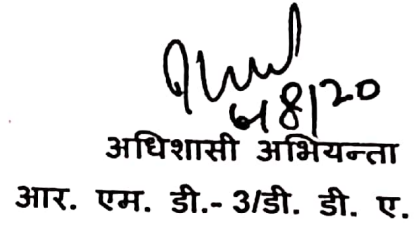 6/8/20
अधिशासी अभियन्ता
आर. एम. डी.- 3/डी. डी. ए.